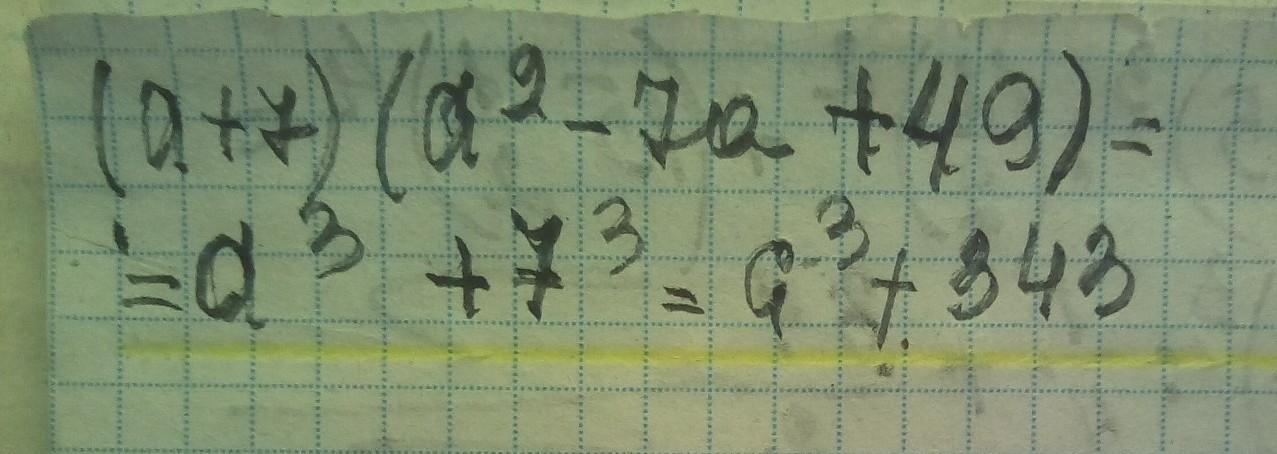 (a+7)(a²-7a+49)=
=a³+7³=a³+343